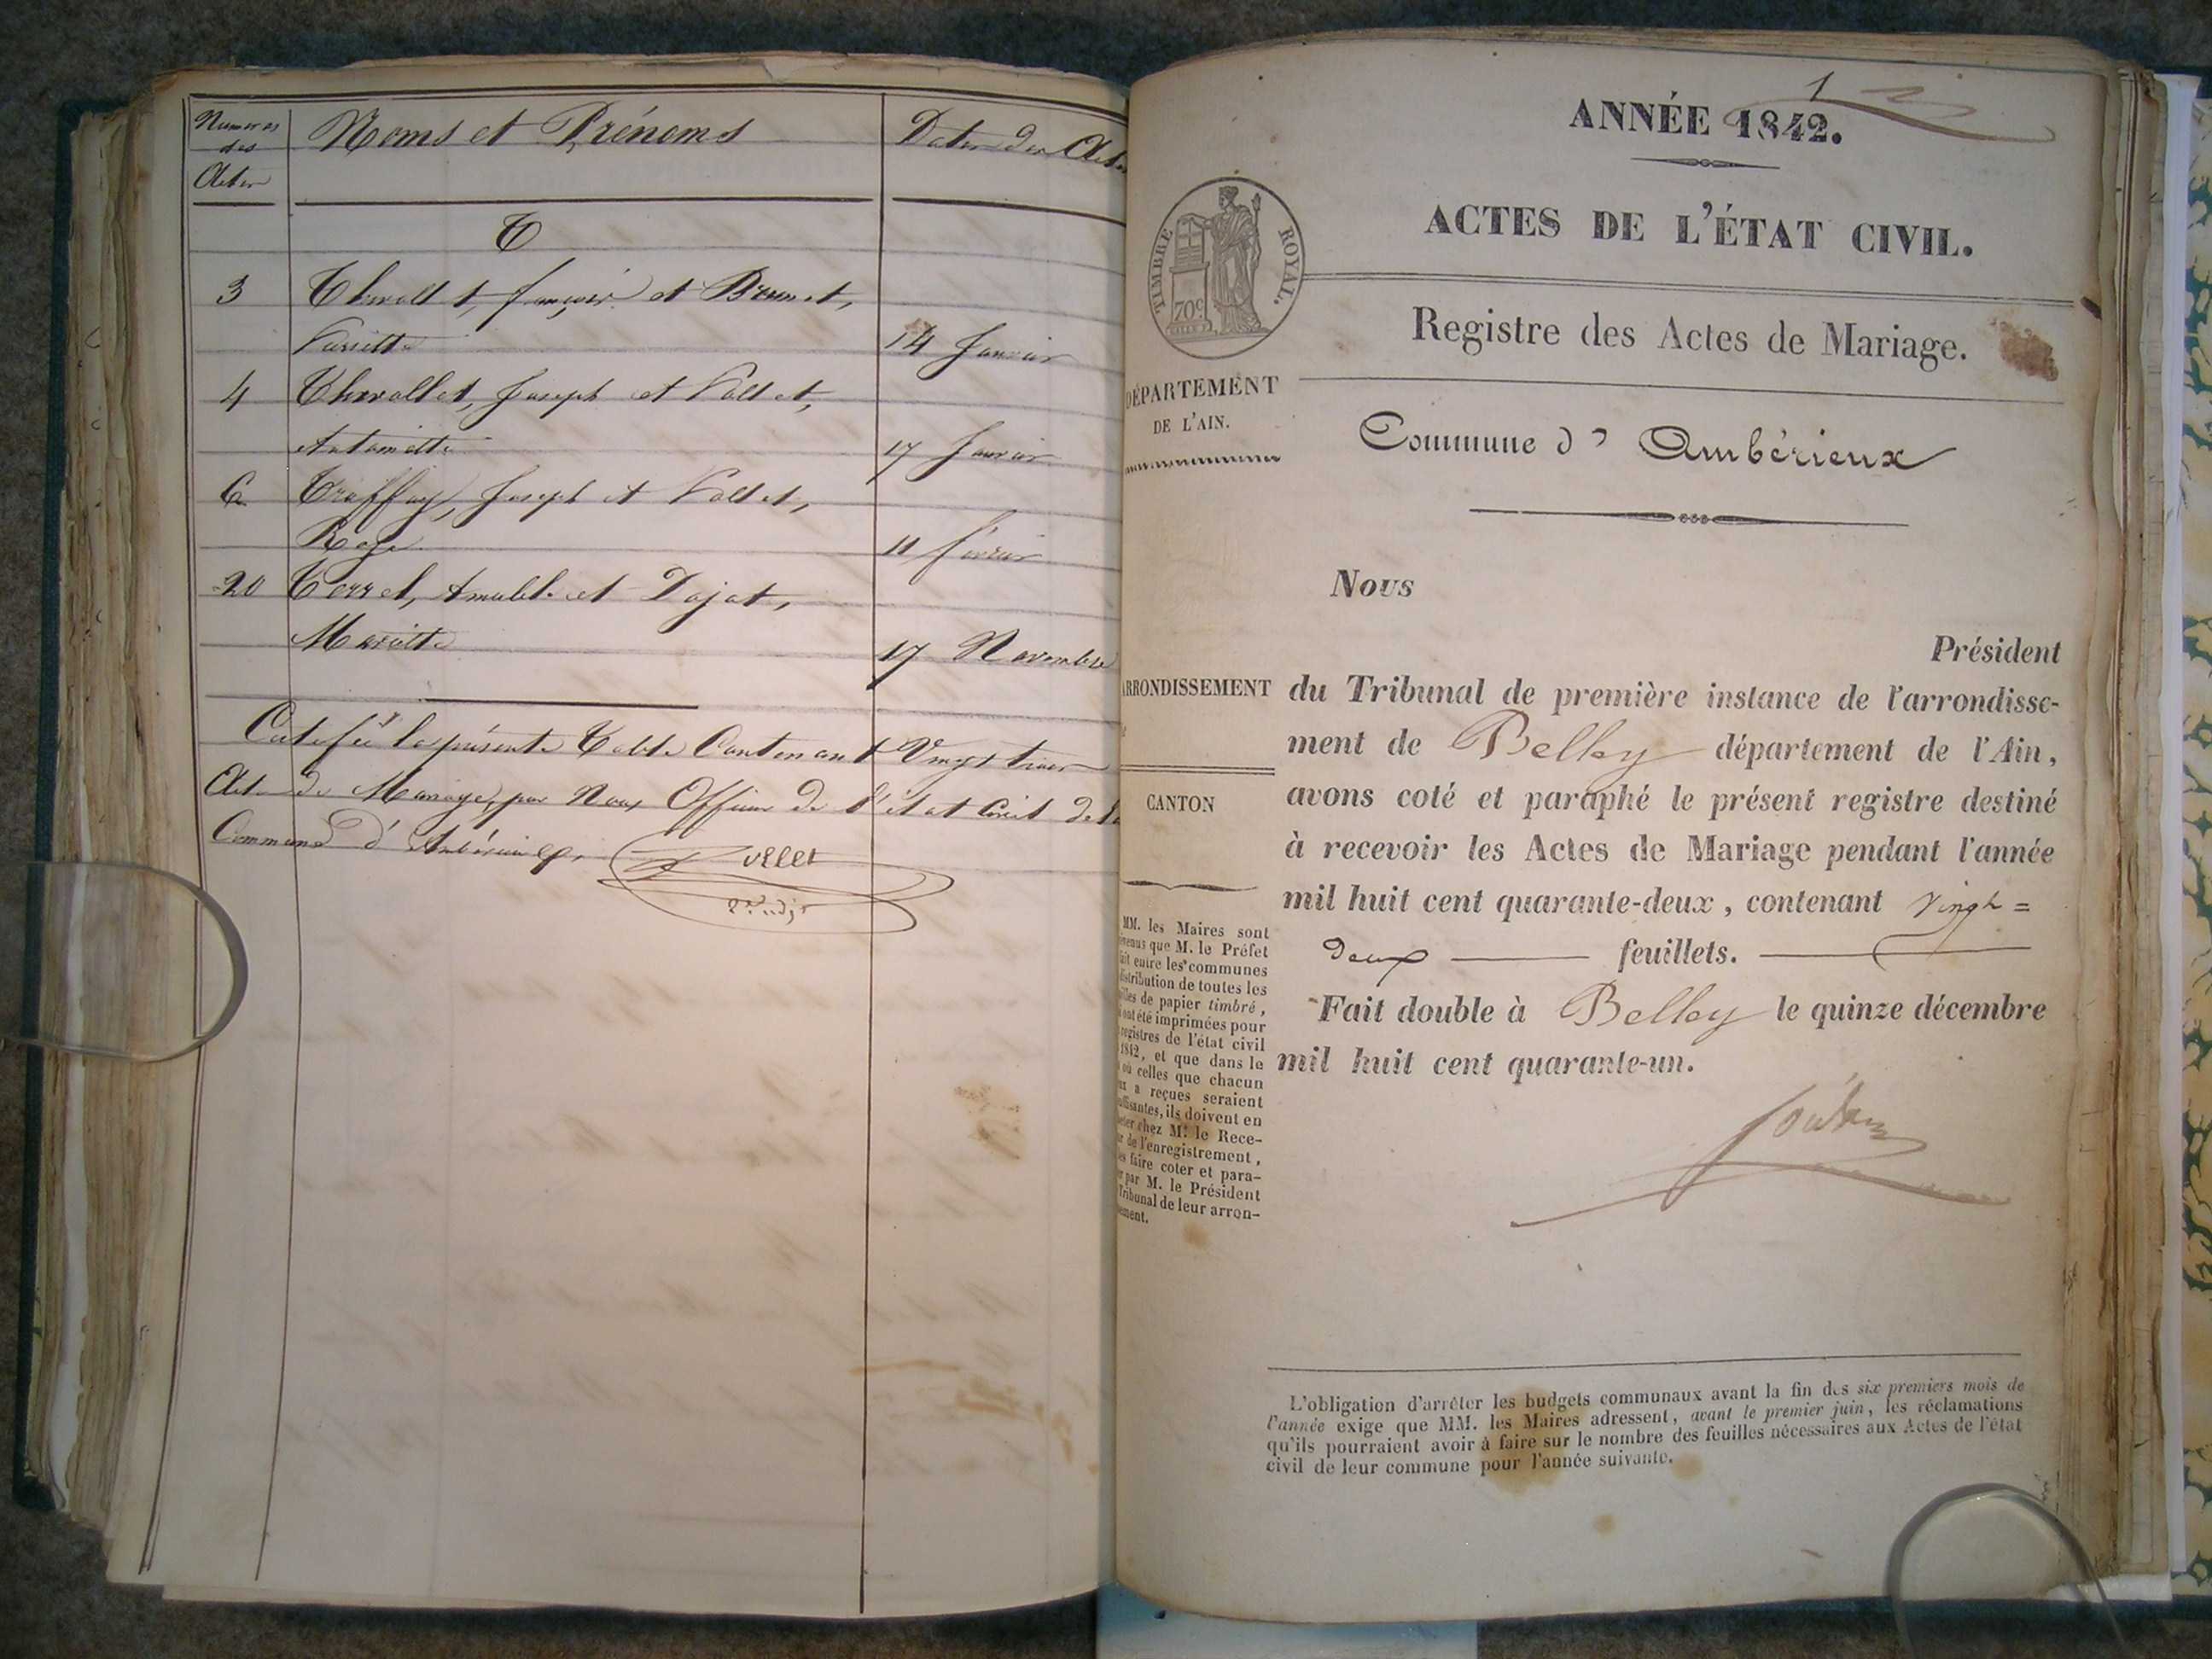 Numéros des Actes
Noms et Prénoms
Dates des Actes
T
3 Thevollet, françois et Brunet,
14 Janvier
4 Thevollet, Joseph et Vollet,
Antoinette 17 Janvier
6 Joseph et Vollet,
Roze 11 février
20 Terret, et Dajat,
Mariette 17 Novembre
Certifié la présente Table Contenant Vingt trois
Actes de Mariage, par Nous Officier de l'état Civil de la
Commune d'Ambérieux,
1
ANNÉE 1842.
ACTES DE L'ÉTAT CIVIL.
TIMBRE ROYAL.
70c
Registre des Actes de Mariage.
DÉPARTEMENT
DE L'AIN.
Commune d'Ambérieux
Nous
Président
ARRONDISSEMENT
du Tribunal de première instance de l'arrondisse-
ment de Belley département de l'Ain,
CANTON
avons coté et paraphé le présent registre destiné
à recevoir les Actes de Mariage pendant l'année
mil huit cent quarante-deux, contenant vingt=
deux feuillets.
Fait double à Belley le quinze décembre
mil huit cent quarante-un.
MM. les Maires sont
que M. le Préfet
entre les communes
distribution de toutes les
de papier timbré,
ont été imprimées pour
registres de l'état civil
1842, et que dans le
où celles que chacun
a reçues seraient
ils doivent en
chez M. le Rece-
de l'enregistrement,
faire coter et para-
par M. le Président
Tribunal de leur arron-
L'obligation d'arrêter les budgets communaux avant la fin des six premiers mois de
l'année exige que MM. les Maires adressent, avant le premier juin, les réclamations
qu'ils pourraient avoir à faire sur le nombre des feuilles nécessaires aux Actes de l'état
civil de leur commune pour l'année suivante.